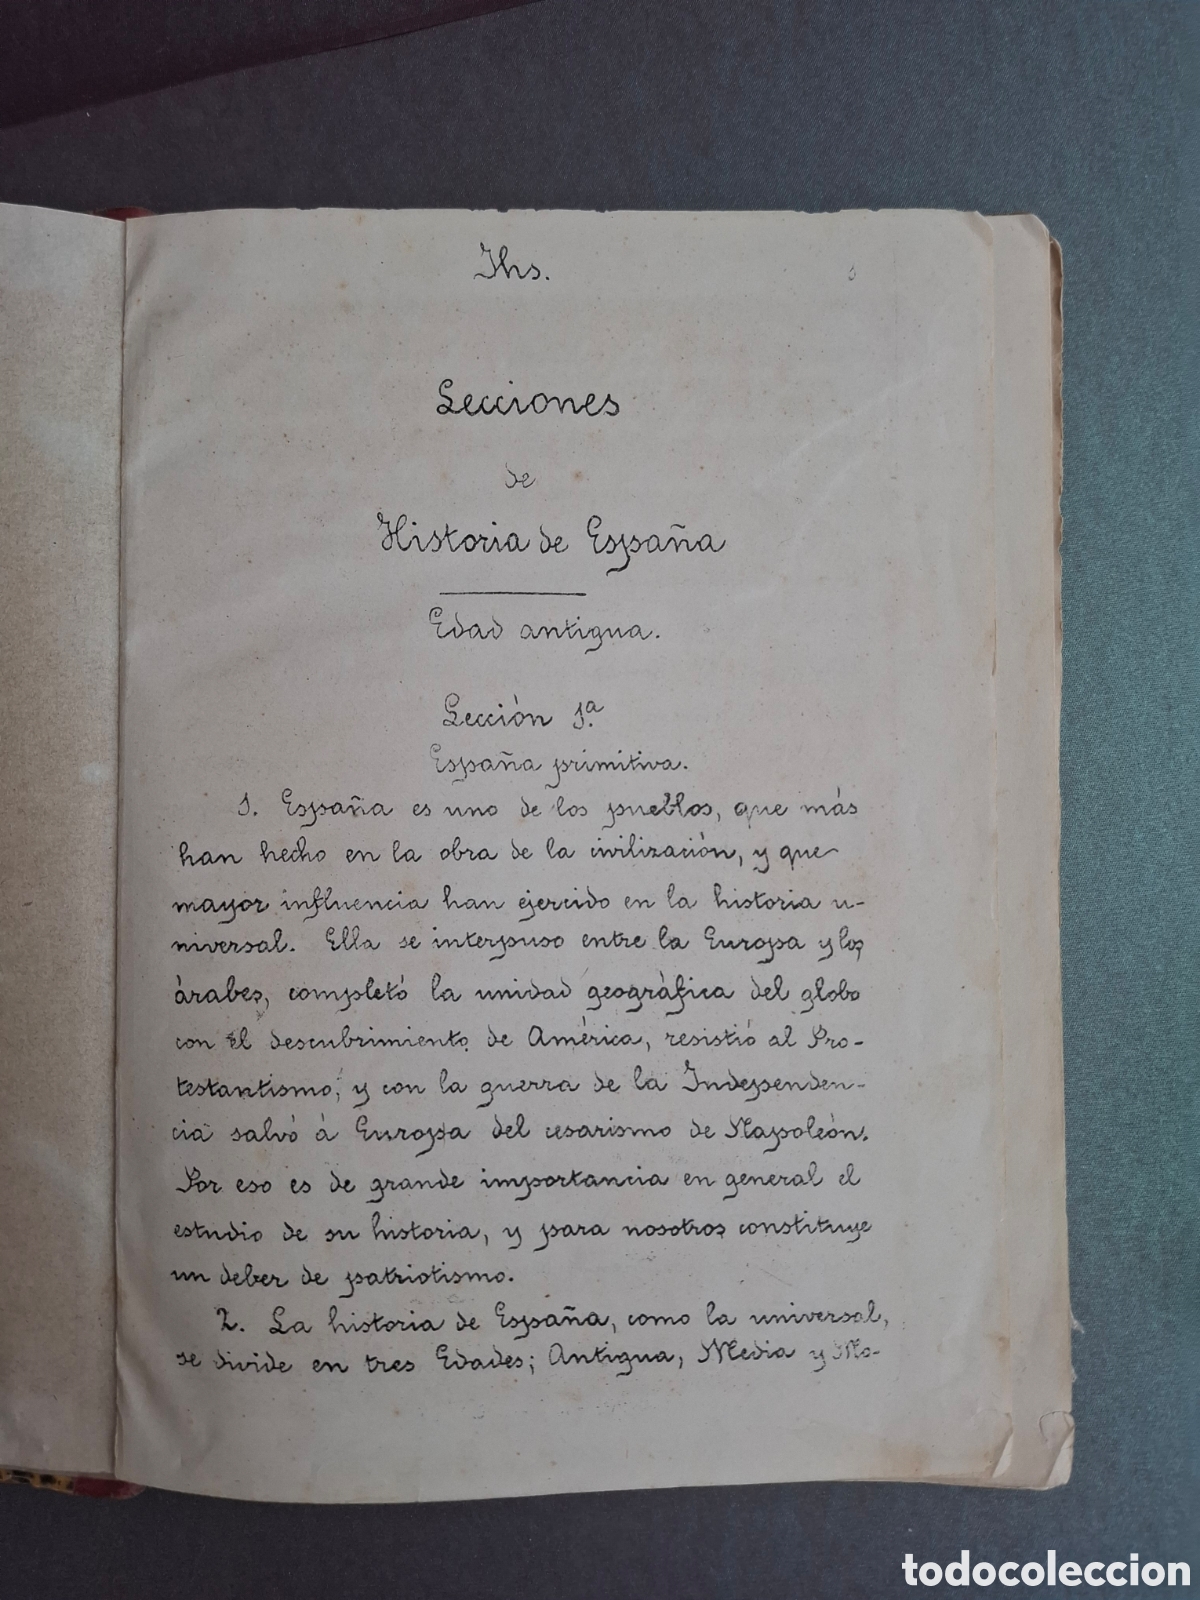 Jhs.
Lecciones
de
Historia de España
Edad antigua.
Lección 1.ª
España primitiva.
1. España es uno de los pueblos, que más
han hecho en la obra de la civilización, y que
mayor influencia han ejercido en la historia u-
niversal. Ella se interpuso entre la Europa y los
árabes, completó la unidad geográfica del globo
con el descubrimiento de América, resistió al Pro-
testantismo, y con la guerra de la Independen-
cia salvó á Europa del cesarismo de Napoleón.
Por eso es de grande importancia en general el
estudio de su historia, y para nosotros constituye
un deber de patriotismo.
2. La historia de España, como la universal,
se divide en tres Edades; Antigua, Media y Mo-
todocoleccion